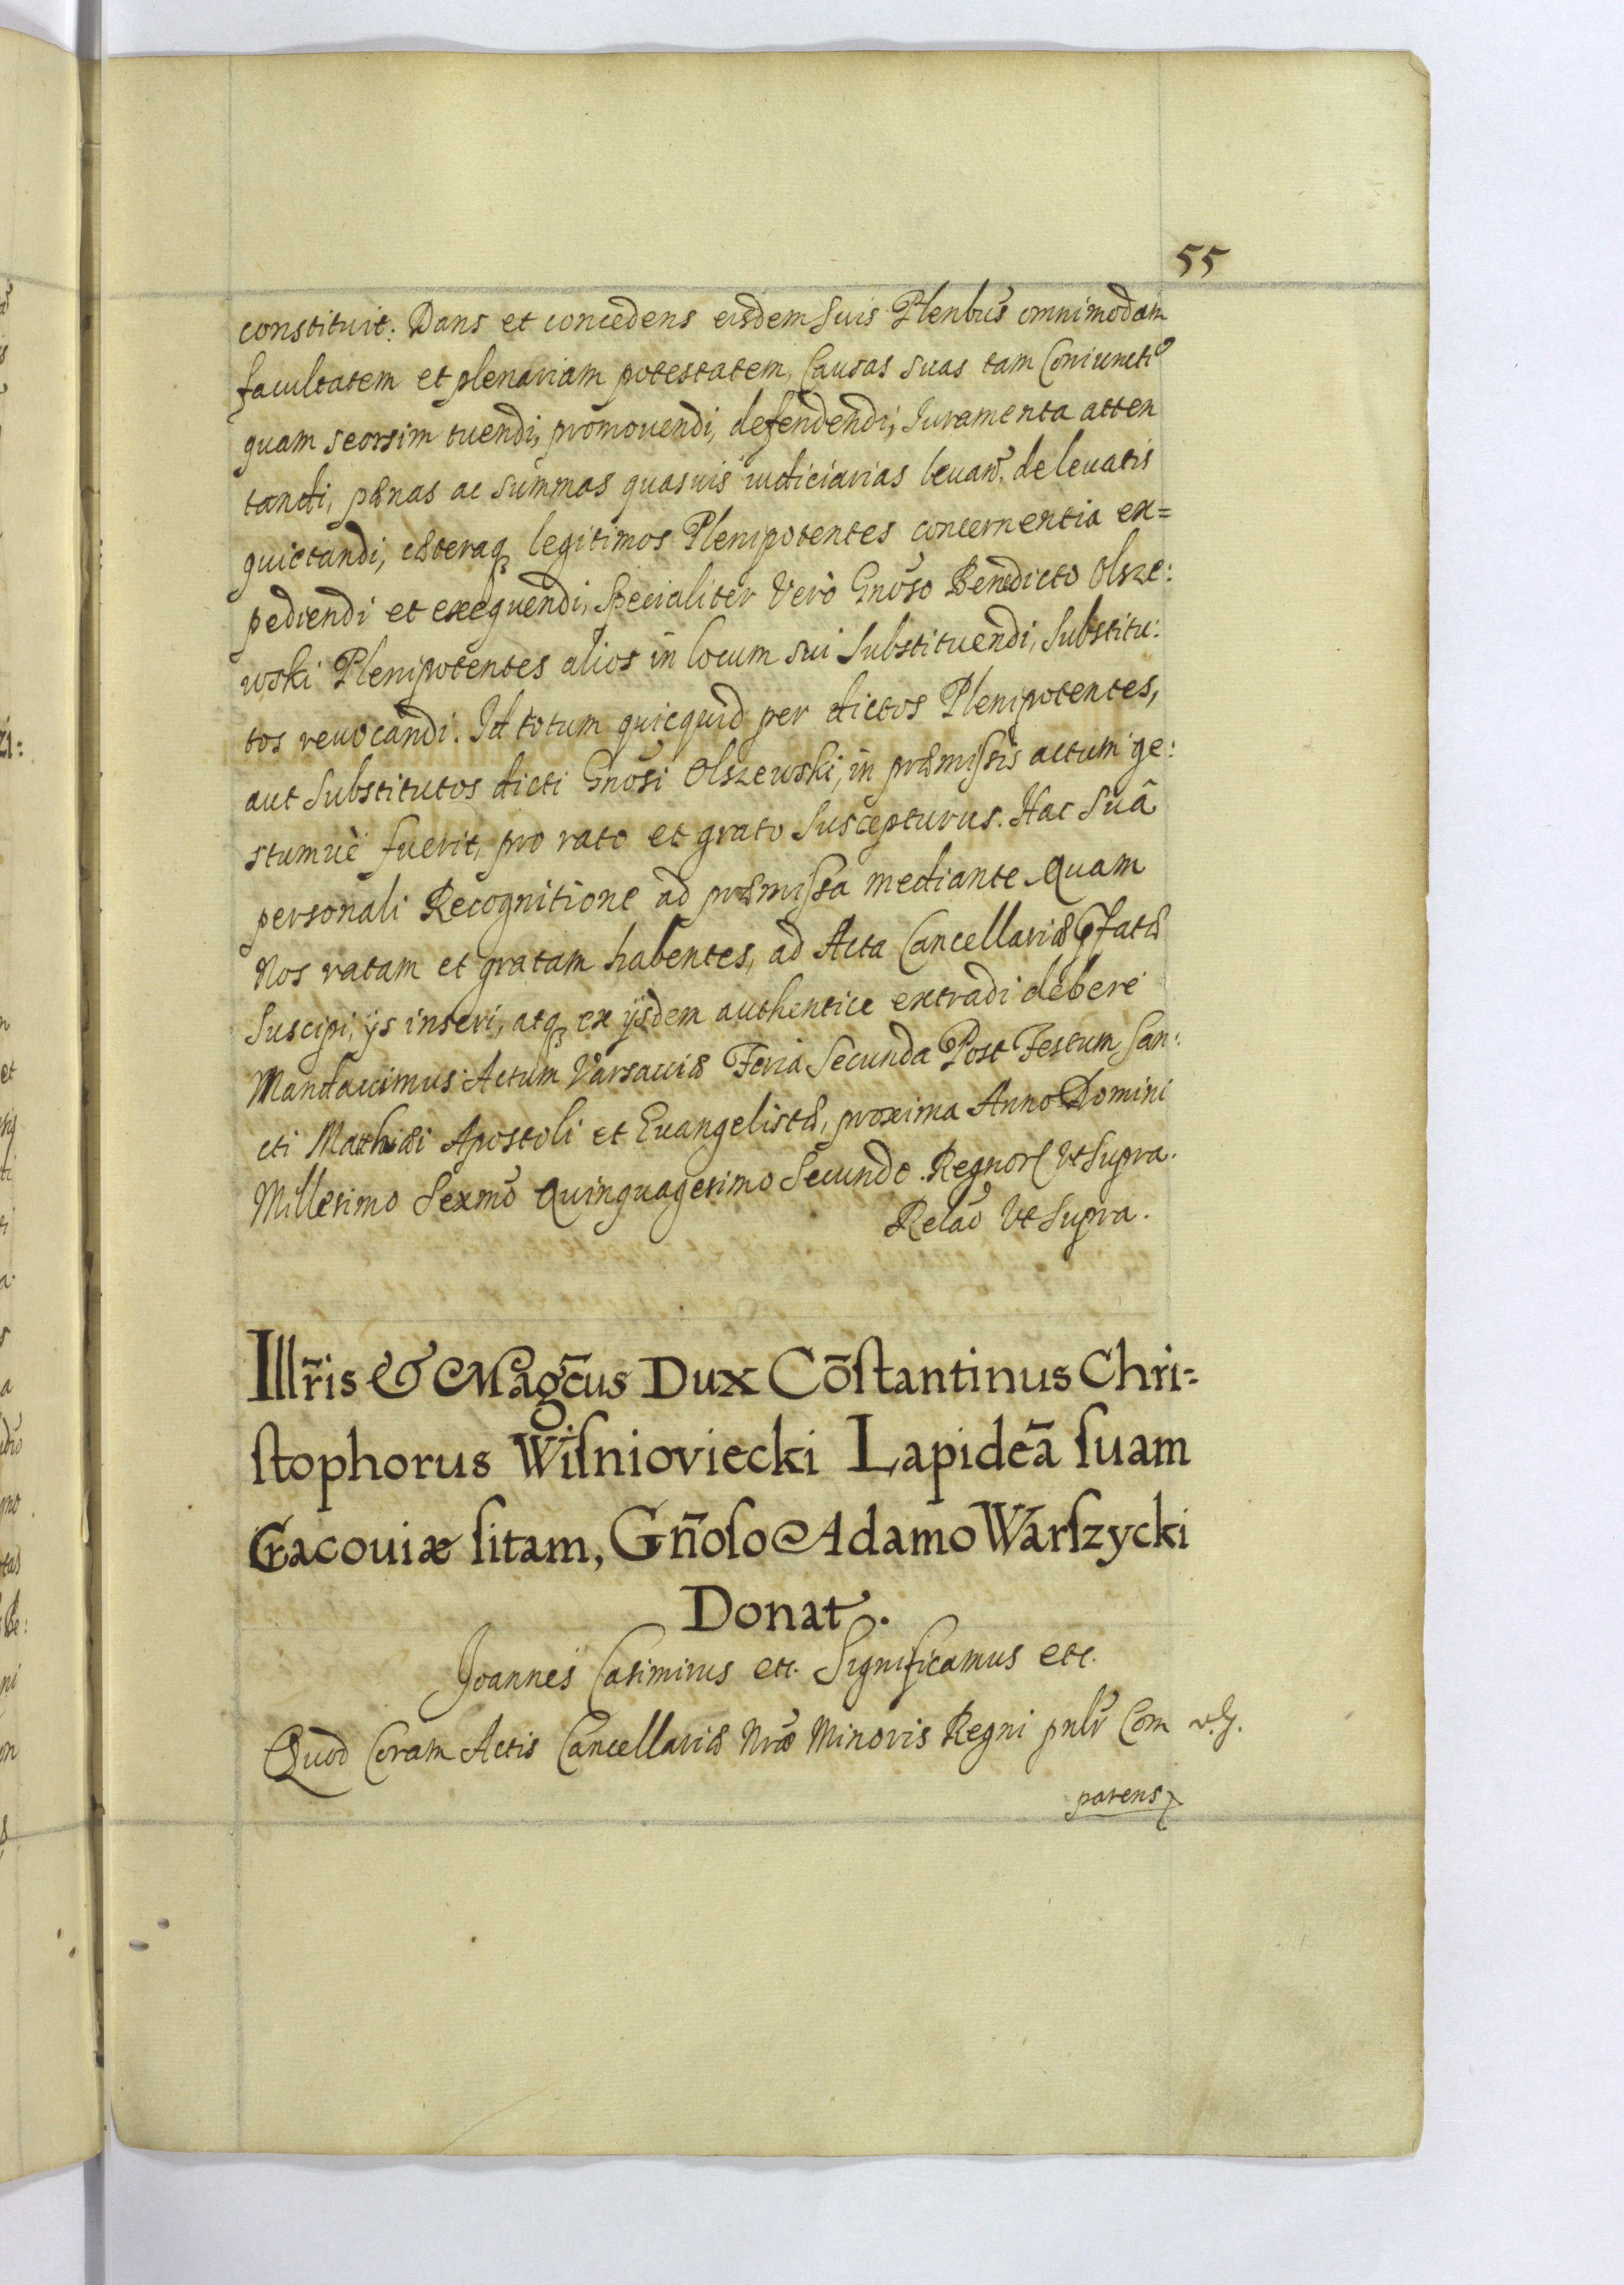 55
constituit. Dans et concedens eisdem suis Plenbus omnimodam
facultatem et plenariam potestatem, Causas suas tam Coniuncti
quam seorsim tuendi, promouendi, defendendi, Iuramenta atten
tandi, pænas ac summas quasuis iudiciarias leuan. de leuatis
quietandi, cæteraq legitimos Plenipotentes concernentia ex=
pediendi et exequendi, Specialiter Vero Gnoso Benedicto Olsze:
wski Plenipotentes alios in locum sui Substituendi, Substitu:
tos reuocandi. Id totum quicquid per dictos Plenipotentes,
aut Substitutos dicti Gnosi Olszewski, in præmissis actum ge:
stumuè fuerit, pro rato et grato Suscepturus. Hac Suâ
personali Recognitione ad præmissa mediante Quam
Nos ratam et gratam habentes, ad Acta Cancellariæ pfatæ
Suscipi, ijs inseri, atq ex ijsdem authentice extradi debere
Mandauimus. Actum Varsauiæ Feria Secunda Post Festum San:
cti Mathæi Apostoli et Euangelistæ, proxima Anno Domini
Millesimo Sexmo Quinquagesimo Secundo. Regnor Vt Supra.
Relao Vt Supra.
Illr̃is & Magc̃us Dux Cõstantinus Chri-
stophorus Wisnioviecki Lapideã suam
Cracouiæ sitam, Gñoso Adamo Warszycki
Donat.
Joannes Casimirus etc. Significamus etc.
Quod Coram Actis Cancellariæ Nræ Minoris Regni pnlr Com
parens